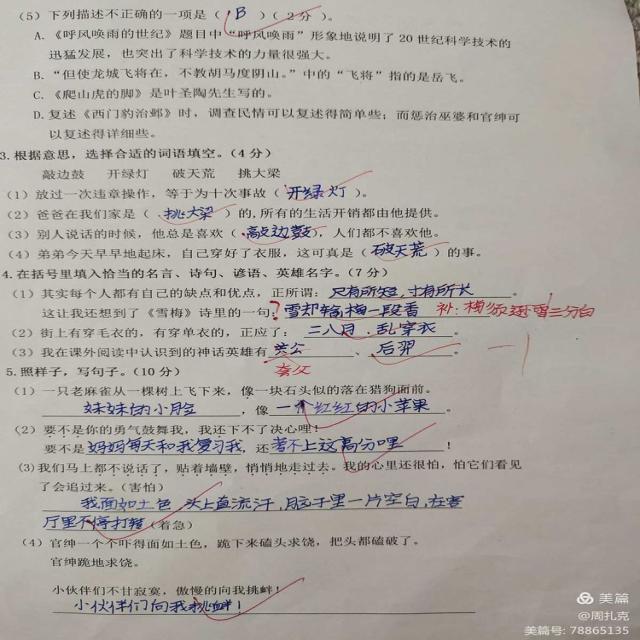 (5) 下列描述不正确的一项是( B )(2分)。
A.《呼风唤雨的世纪》题目中“呼风唤雨”形象地说明了20世纪科学技术的
迅猛发展,也突出了科学技术的力量很强大。
B.“但使龙城飞将在,不教胡马度阴山。”中的“飞将”指的是岳飞。
C.《爬山虎的脚》是叶圣陶先生写的。
D.复述《西门豹治邺》时,调查民情可以复述得简单些;而惩治巫婆和官绅可
以复述得详细些。
3.根据意思,选择合适的词语填空。(4分)
敲边鼓 开绿灯 破天荒 挑大梁
(1)放过一次违章操作,等于为十次事故(开绿灯)。
(2)爸爸在我们家是(挑大梁)的,所有的生活开销都由他提供。
(3)别人说话的时候,他总是喜欢(敲边鼓),人们都不喜欢他。
(4)弟弟今天早早地起床,自己穿好了衣服,这可真是(破天荒)的事。
4.在括号里填入恰当的名言、诗句、谚语、英雄名字。(7分)
(1)其实每个人都有自己的缺点和优点,正所谓:尺有所短,寸有所长。
这让我还想到了《雪梅》诗里的一句?雪却输梅一段香 补:梅须逊雪三分白
(2)街上有穿毛衣的,有穿单衣的,正应了:二八月,乱穿衣。
(3)我在课外阅读中认识到的神话英雄有共公、后羿。 —1
夸父
5.照样子,写句子。(10分)
(1)一只老麻雀从一棵树上飞下来,像一块石头似的落在猎狗面前。
妹妹的小脸,像一个红红的小苹果。
(2)要不是你的勇气鼓舞我,我还下不了决心哩!
要不是妈妈每天和我复习我,还考不上这高分哩!
(3)我们马上都不说话了,贴着墙壁,悄悄地走过去。我的心里还很怕,怕它们看见
了会追过来。(害怕)
我面如土色,头上直流汗,脑子里一片空白,在客
厅里不停打转(着急)
(4)官绅一个个吓得面如土色,跪下来磕头求饶,把头都磕破了。
官绅跪地求饶。
小伙伴们不甘寂寞,傲慢的向我挑衅!
小伙伴们向我挑衅!
美篇
@周扎克
美篇号:78865135